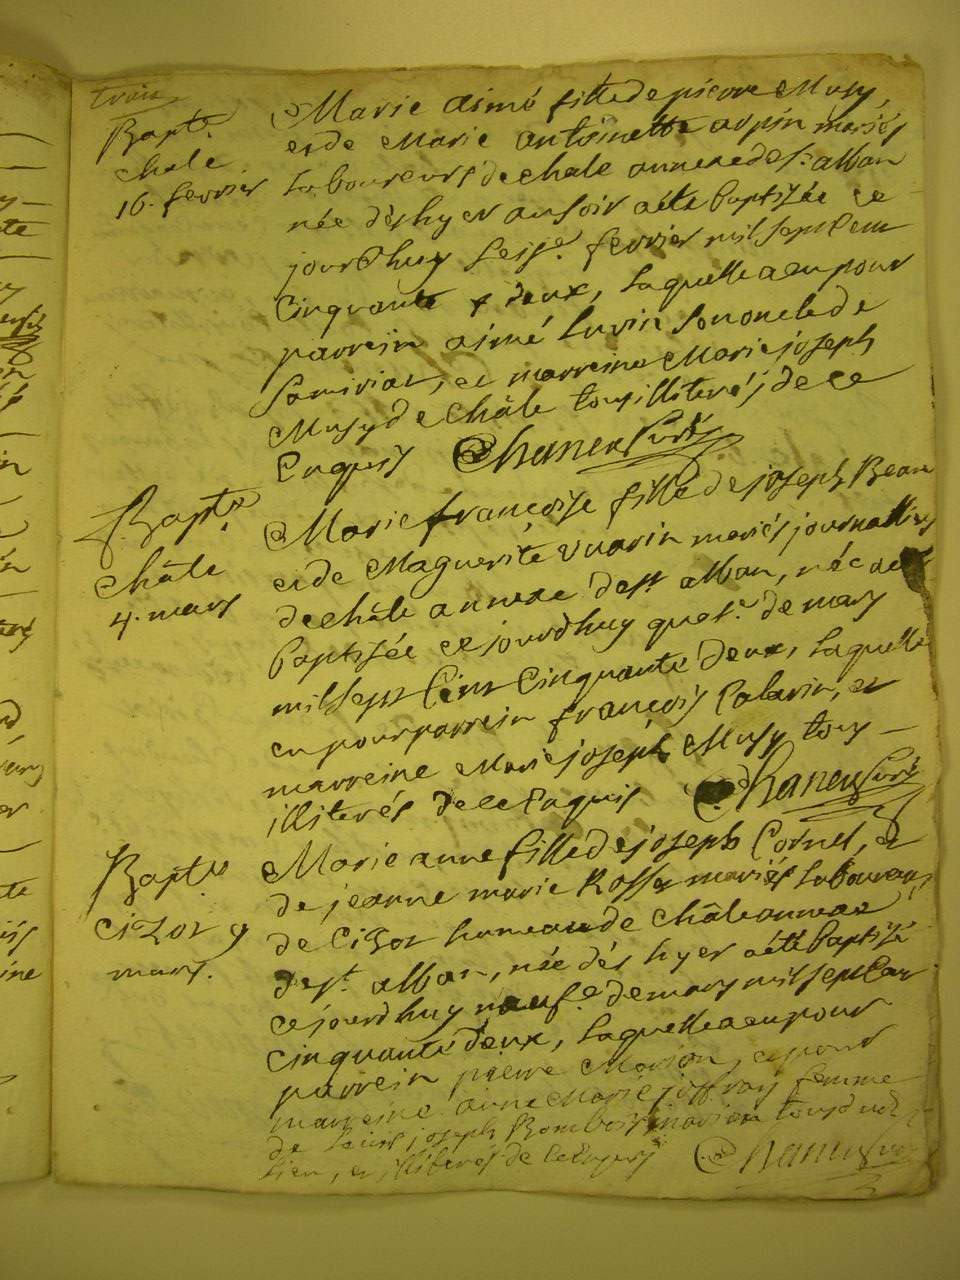 trois
Bapt.e
chale
16. fevrier
Marie aimé fille de pierre Musy,
et de Marie antoinette arpin mariés
laboureurs de chale annexe de s.t alban
née dès hyer au soir a été baptisée ce
jourdhuy seis.e fevrier mil sept cent
cinquante & deux, laquelle a eu pour
parrein aimé son oncle de
et marreine Marie joseph
Musy de Châle tous illiterés de ce
Enquis Chanen Curé
Bapt.e
châle
4. mars
Marie françoise fille de joseph Bean
et de Maguerite vuarin mariés journalliers
de châle annexe de s.t alban, née et
baptisée ce jourdhuy quat.e de mars
mil sept Cent Cinquante deux, laquelle
eu pour parrein françois Calavin, et
marreine Marie joseph Musy tous
illiterés de ce Enquis Chanen Curé
Bapt.e
Cizot 9
mars.
Marie anne fille de joseph Cornet, et
de jeanne marie Rosset mariés laboureurs
de Cizot hameau de Châle annexe
de s.t alban, née dès hyer a été baptisé
ce jourdhuy neuf.e de mars mil sept Cent
Cinquante deux, laquelle a eu pour
parrein pierre Morion, et pour
marreine anne Marie joffray femme
de joseph tous dud.
lieu, et illiterés de ce Enquis Chanen Curé